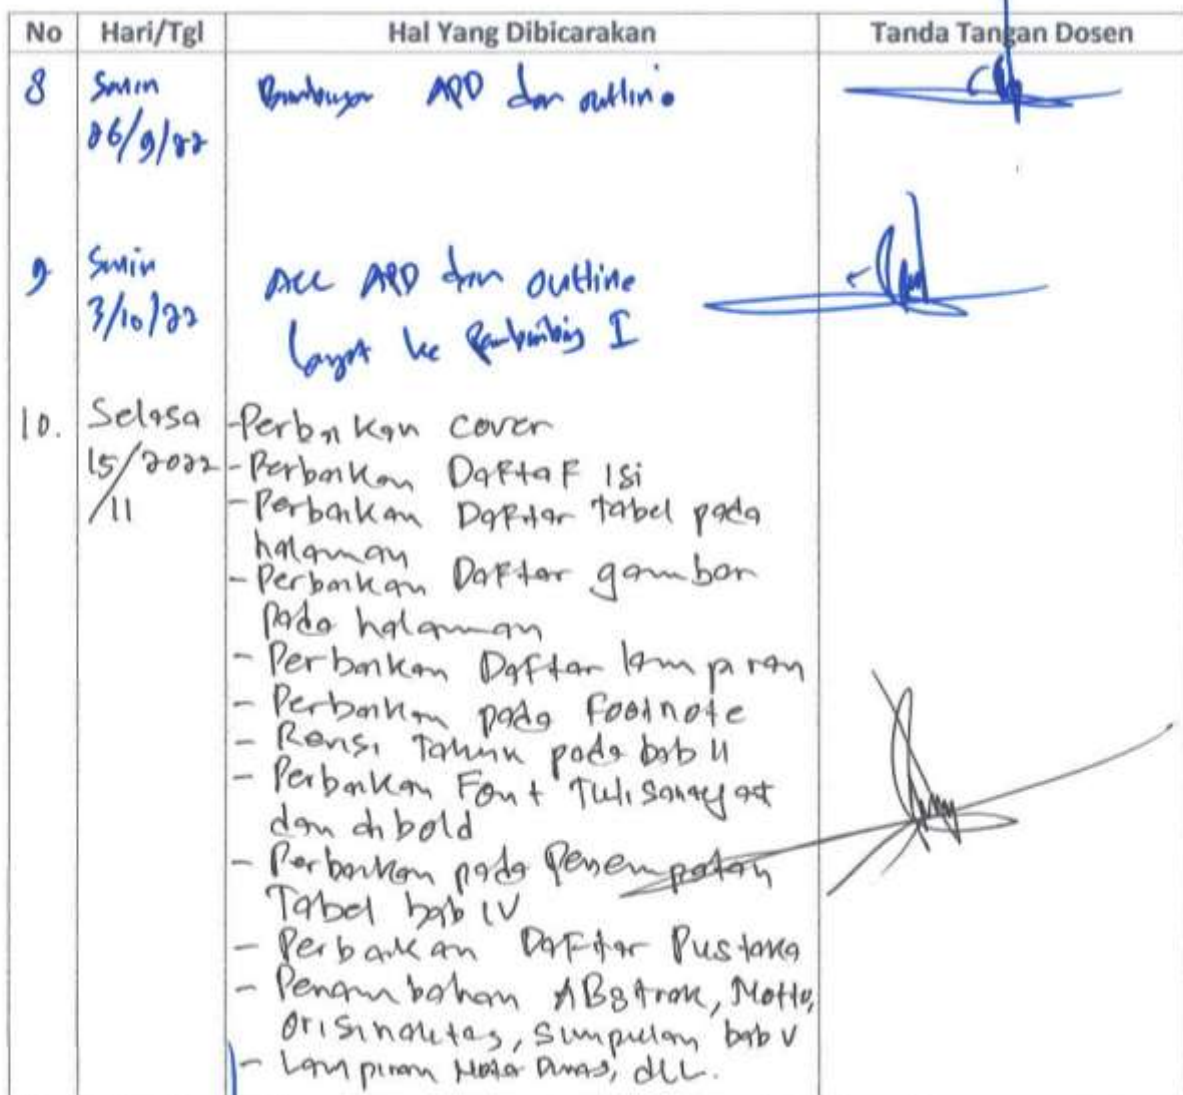 No Hari/Tgl Hal Yang Dibicarakan Tanda Tangan Dosen
8 Senin Bimbingan APD dan outline
26/9/22
9 Senin Acc APD dan outline
3/10/22 lanjut ke Pembimbing I
10. Selasa - Perbaikan cover
15/2022 - Perbaikan Daftar Isi
/11 - Perbaikan Daftar tabel pada
halaman
- Perbaikan Daftar gambar
pada halaman
- Perbaikan Daftar lampiran
- Perbaikan pada Footnote
- Revisi Tahun pada bab II
- Perbaikan Font Tulisan ayat
dan di bold
- Perbaikan pada Penempatan
Tabel bab IV
- Perbaikan Daftar Pustaka
- Penambahan ABstrak, Motto,
Orisinalitas, Simpulan bab V
- Lampiran Nota Dinas, dLL.